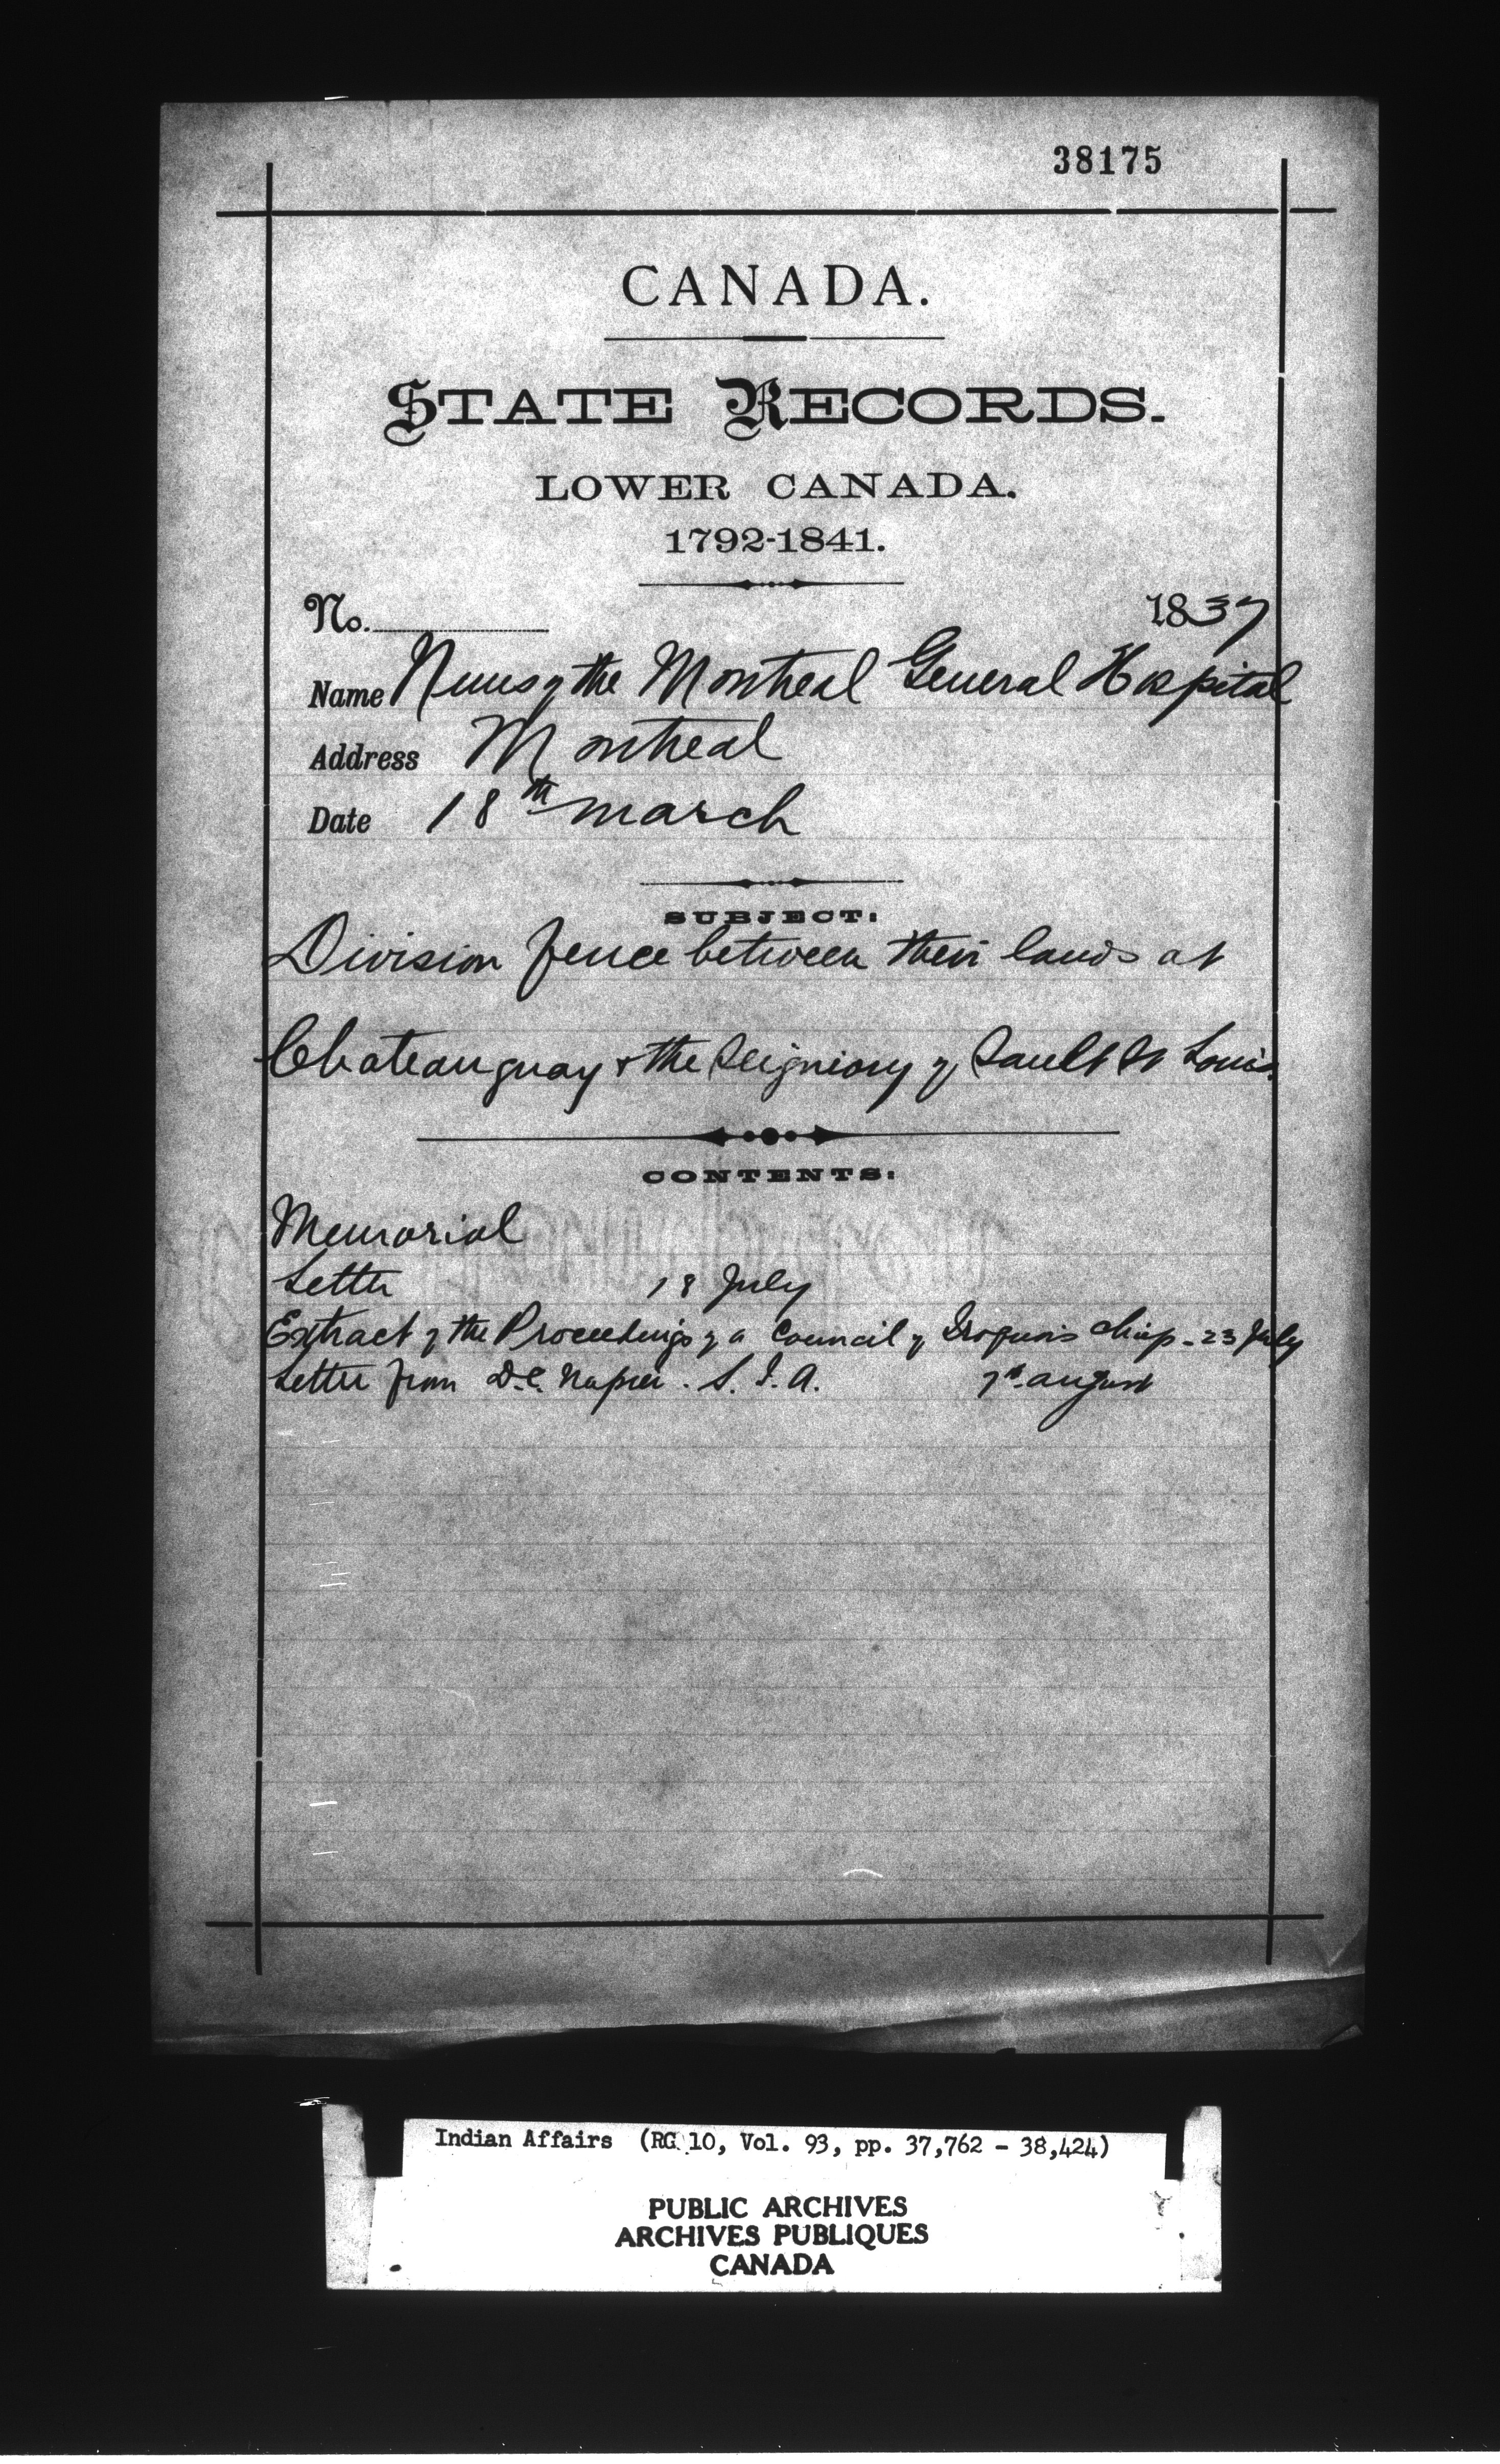 38175
CANADA.
STATE RECORDS.
LOWER CANADA.
1792-1841.
No. 1837
Name Nuns of the Montreal General Hospital
Address Montreal
Date 18th march
SUBJECT:
Division fence between their lands at
Chateauguay & the Seigniory of Sault St Louis
CONTENTS:
Memorial
Letter 18 July
Extract of the Proceedings of a Council of Iroquois Chiefs - 23 July
Letter from D.C. Napier. S. I. A. 7th august
Indian Affairs (RG 10, Vol. 93, pp. 37,762 - 38,424)
PUBLIC ARCHIVES
ARCHIVES PUBLIQUES
CANADA